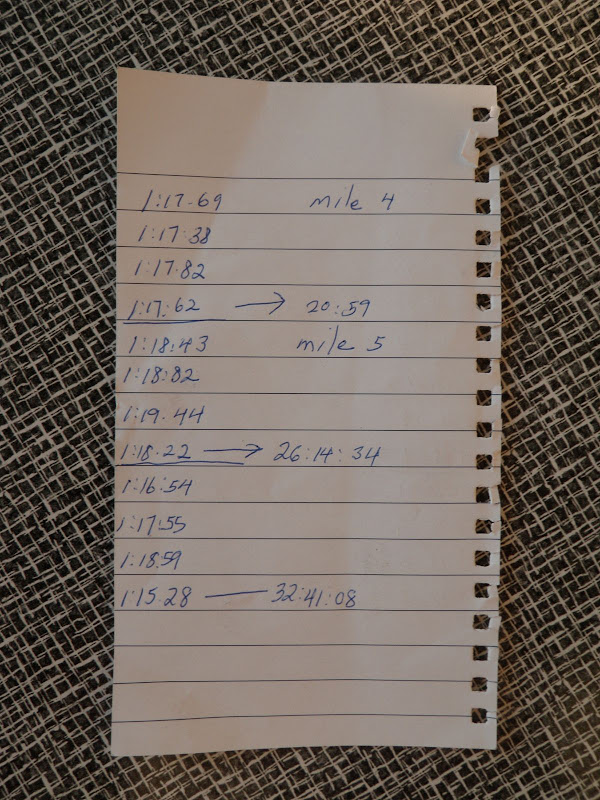 1:17.69 mile 4
1:17.38
1:17.82
1:17:62 → 20:59
1:18:43 mile 5
1:18:82
1:19.44
1:18.22 → 26:14:34
1:16:54
1:17:55
1:18.59
1:15.28 — 32:41:08